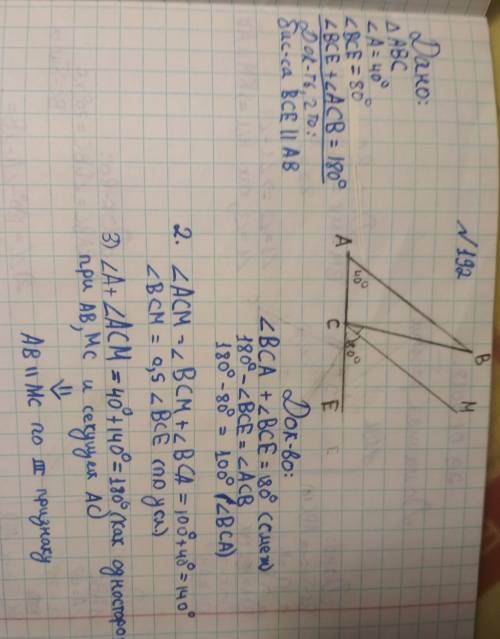 N 192
Дано:
△ABC
∠A = 40°
∠BCE = 80°
∠BCE + ∠ACB = 180°
Док-ть, что:
бис-са BCE || AB
A
40°
B
C
80°
M
E
Док-во:
∠BCA + ∠BCE = 180° (смеж)
180° - ∠BCE = ∠ACB
180° - 80° = 100° (∠BCA)
2. ∠ACM = ∠BCM + ∠BCA = 100° + 40° = 140°
∠BCM = 0,5 ∠BCE (по усл)
3) ∠A + ∠ACM = 40° + 140° = 180° (как одностор
при AB, MC и секущей AC)
⇓
AB || MC по III признаку